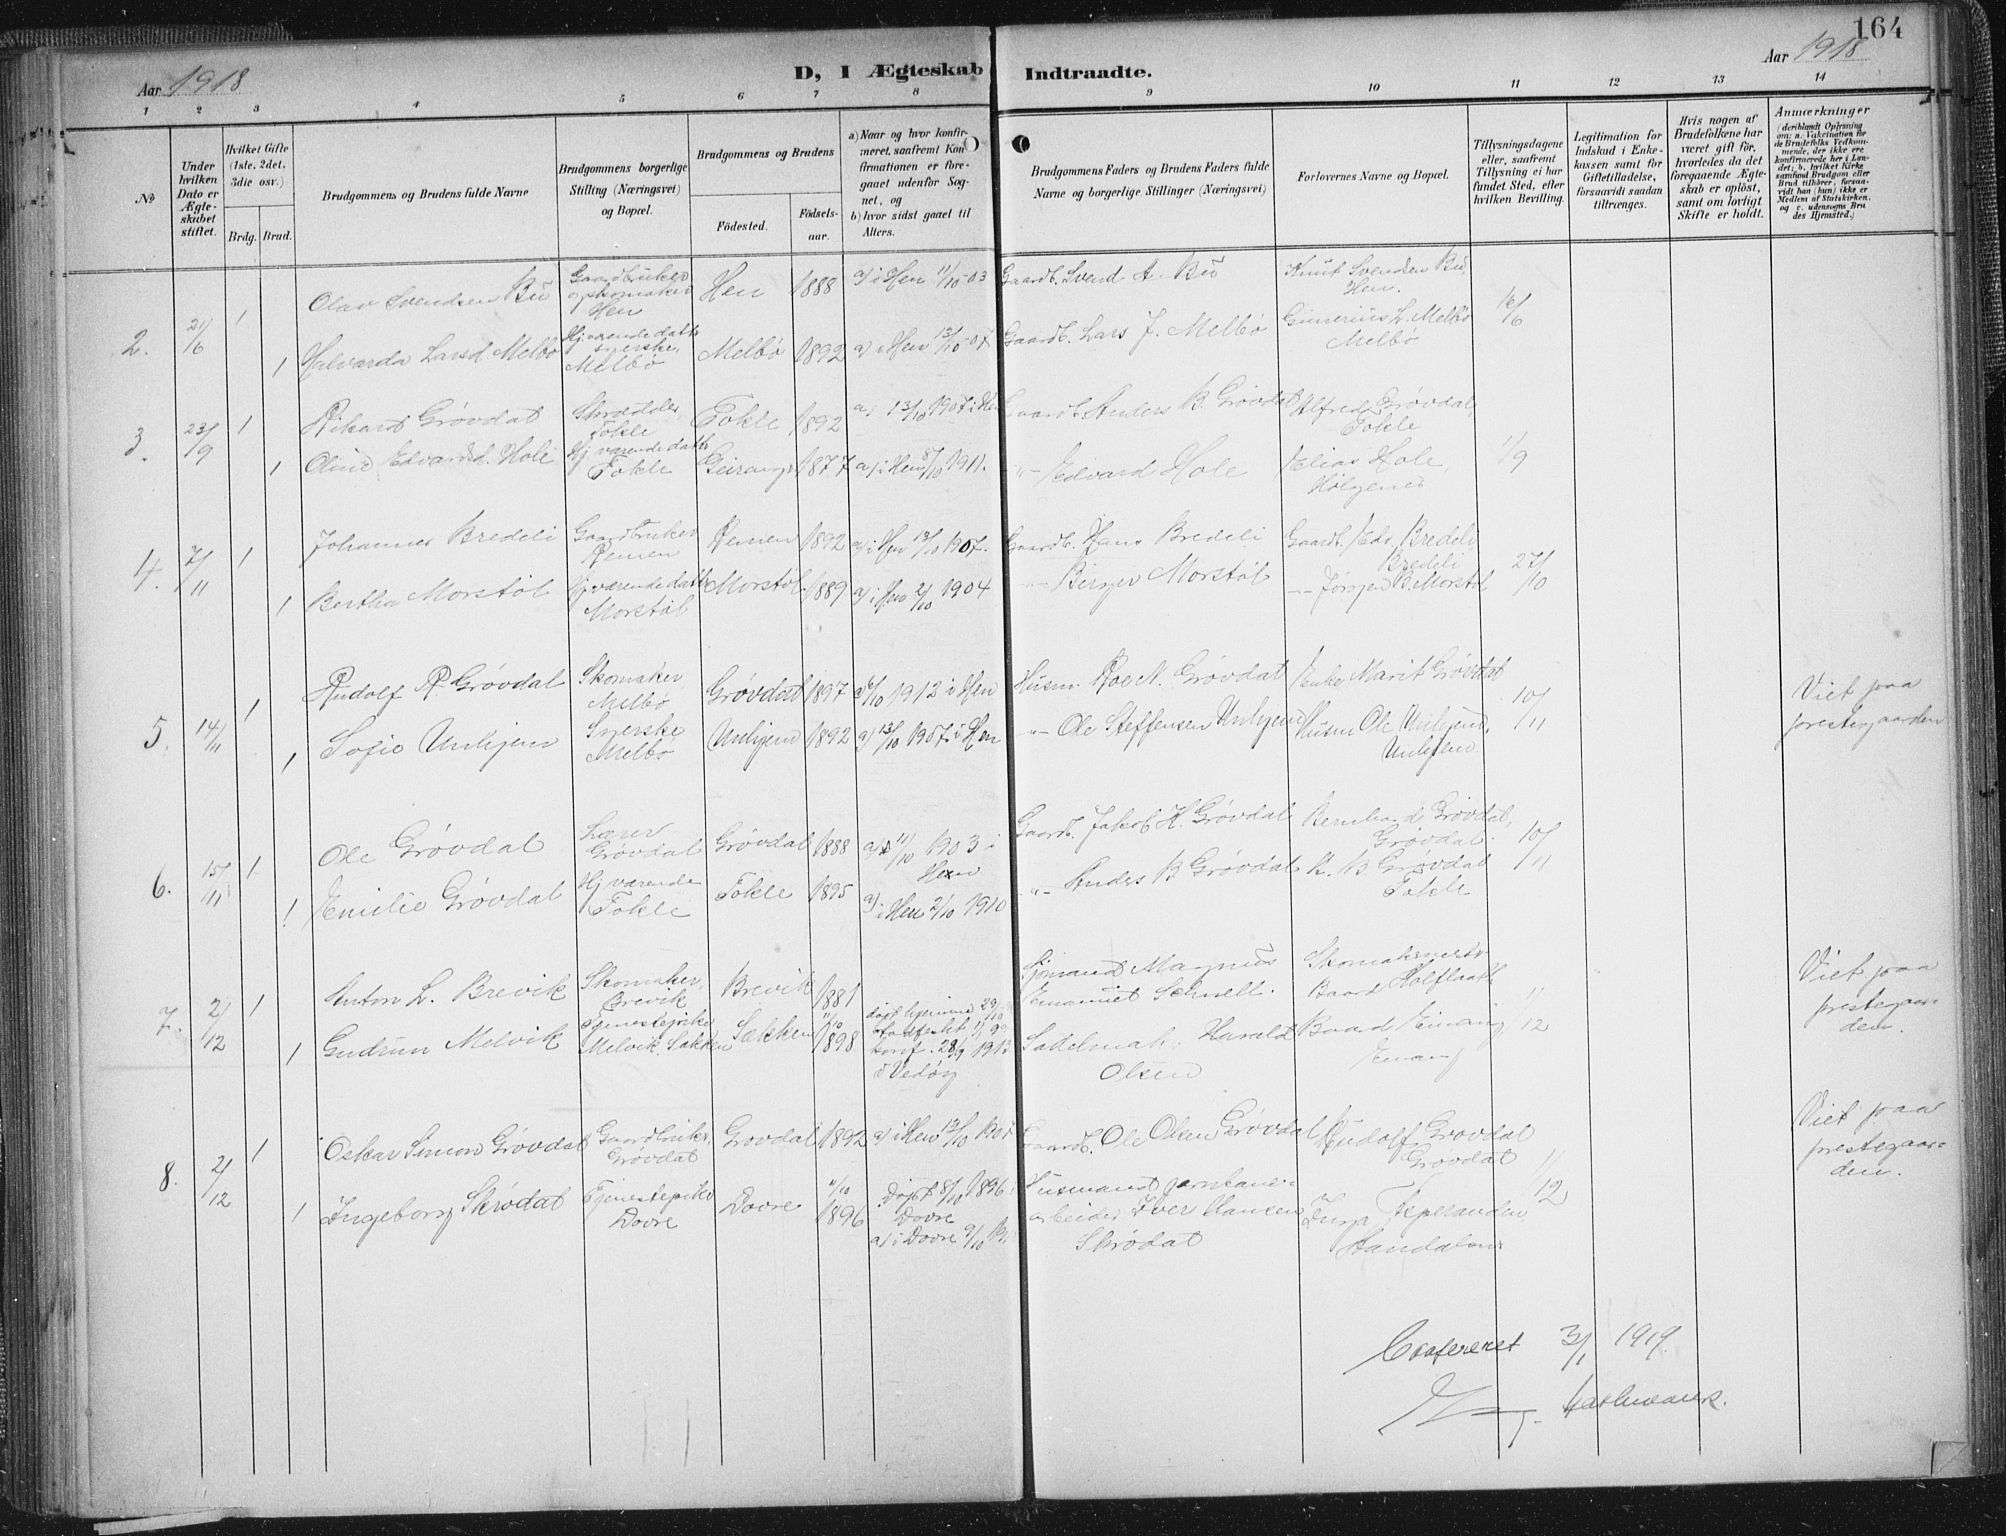 164
Aar 1918
D, I Ægteskab Indtraadte.
Aar 1918
1 2 3 4 5 6 7 8 9 10 11 12 13 14
No
Under hvilken Dato er Ægteskabet stiftet.
Hvilket Gifte (1ste, 2det, 3die osv.)
Brdg. Brud.
Brudgommens og Brudens fulde Navne
Brudgommens borgerlige Stilling (Næringsvei) og Bopæl.
Brudgommens og Brudens
Fødested.
Fødselsaar.
a) Naar og hvor konfirmeret, saafremt Konfirmationen er foregaaet udenfor Sognet, og
b) hvor sidst gaaet til Alters.
Brudgommens Faders og Brudens Faders fulde Navne og borgerlige Stillinger (Næringsvei)
Forlovernes Navne og Bopæl.
Tillysningsdagene eller, saafremt Tillysning ei har fundet Sted, efter hvilken Bevilling.
Legitimation for Indskud i Enkekassen samt for Giftetilladelse, forsaavidt saadan tiltrænges.
Hvis nogen af Brudefolkene har været gift før, hvorledes da det foregaaende Ægteskab er opløst, samt om lovligt Skifte er holdt.
Anmærkninger
(deriblandt Oplysning om: a. Vakcination for de Brudefolks Vedkommende, der ikke ere konfirmerede her i Landet; b. hvilket Kirkesamfund Brudgom eller Brud tilhører, forsaavidt han (hun) ikke er Medlem af Statskirken, og c. udensogns Brudes Hjemsted.)
2. 21/6 1 Olav Svendsen Bü Gaardbruker og skomaker Hen Hen 1888 a) i Hen 11/10-03 Gaardb. Svend A. Bü Knut Svendsen Bü, Hen. 16/6
1 Halvarda Larsd. Melbø Hj.værende datter syerske, Melbø Melbø 1892 a) i Hen 13/10-07 Gaardb. Lars J. Melbø L. Melbø Melbø
3. 23/9 1 Rikard Grøvdal Skrædder, Tokle Tokle 1892 a) 13/10 1907 i Hen Gaardb. Anders B. Grøvdal Alfred Grøvdal, Tokle 1/9
1 Oline Edvardsd. Hole Hj.værende datter Tokle Geiranger 1877 a) i Hen 8/10 1911. -"- Edvard Hole Elias Hole,
4. 7/11 1 Johannes Bredeli Gaardbruker Remen Remen 1892 a) i Hen 13/10 1907. Gaardb. Hans Bredeli Gaardb. Edv. Bredeli, Bredeli 27/10
1 Bertha Morstøl Hj.værende datter Morstøl Morstøl 1889 a) i Hen 2/10 1904 -"- Birger Morstøl -"- Jørgen B. Morstøl
5. 14/11 1 Rudolf R. Grøvdal Skomaker Melbø Grøvdal 1897 6/10 1912 i Hen Husm. Roe N. Grøvdal Enke Marit Grøvdal 10/11 Viet paa prestegaarden
1 Sofie Unhjem Syerske Melbø Unhjem 1892 a) 13/10 1907 i Hen -"- Ole Steffensen Unhjem Husm Ole Unhjem, Unhjem
6. 15/11 1 Ole Grøvdal Lærer Grøvdal Grøvdal 1888 a) 11/10 1903 i Hen Gaardb. Jakob H. Grøvdal Bernhard Grøvdal, Grøvdal. 10/11
1 Emilie Grøvdal Hj.værende Tokle Tokle 1895 a) i Hen 2/10 1910 -"- Anders B Grøvdal K. B. Grøvdal Tokle
7. 2/12 1 Anton L. Brevik Skomaker, Brevik Brevik 1881 Sjømand Magnus Emanuel Schnell. Skomakermester Baard Halflaath 1/12 Viet paa prestegaarden.
1 Gudrun Melvik Tjenestepike Melvik, Sækken Sækken 11/10 1898 døpt hjemme 29/10 stadfestet 1/1 99 konf. 28/9 1913 i Vedøy Sadelmak. Harald Olsen Baard Einang Einang
8. 2/12 1 Oskar Simon Grøvdal Gaardbruker, Grøvdal Grovdal 1892 a) i Hen 13/10 1907 Gaardb. Ole Olsen Grøvdal Rudolf Grovdal Grøvdal 1/12 Viet paa prestegaarden.
1 Ingeborg Skrødal Tjenestepike Dovre Dovre 1896 Døpt 8/11 1896 i Dovre a) i Dovre 9/10 Husmand jernbanearbeider Iver Hansen Skrødal
Confereret 3/1 1919